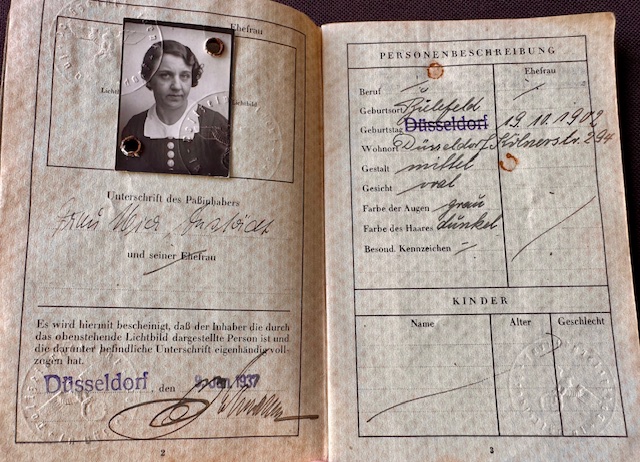 Ehefrau
Lichtbild
Lichtbild
Unterschrift des Paßinhabers
Frau
und seiner Ehefrau
Es wird hiermit bescheinigt, daß der Inhaber die durch
das obenstehende Lichtbild dargestellte Person ist und
die darunter befindliche Unterschrift eigenhändig voll-
zogen hat.
Düsseldorf, den 9. Jan. 1937
2
PERSONENBESCHREIBUNG
Ehefrau
Beruf
Geburtsort Bielefeld
Geburtstag Düsseldorf 19.10.1902
Wohnort Düsseldorf, Kölnerstr. 294
Gestalt mittel
Gesicht oval
Farbe der Augen grau
Farbe des Haares dunkel
Besond. Kennzeichen
KINDER
Name Alter Geschlecht
3